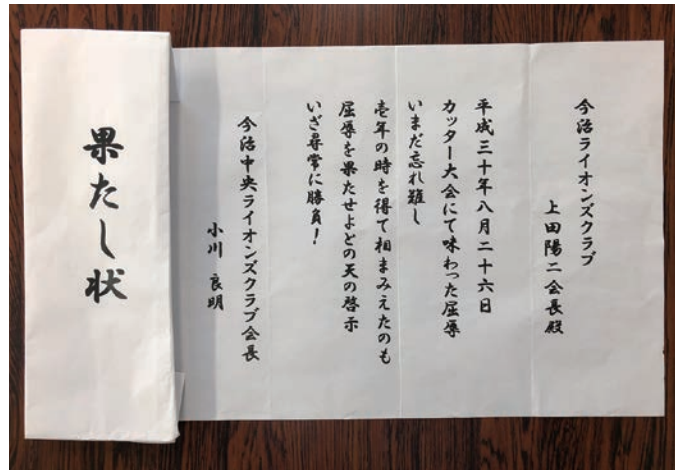 果たし状
今治ライオンズクラブ
上田陽二会長殿
平成三十年八月二十六日
カッター大会にて味わった屈辱
いまだ忘れ難し
壱年の時を得て相まみえたのも
屈辱を果たせよとの天の啓示
いざ尋常に勝負！
今治中央ライオンズクラブ会長
小川 良明